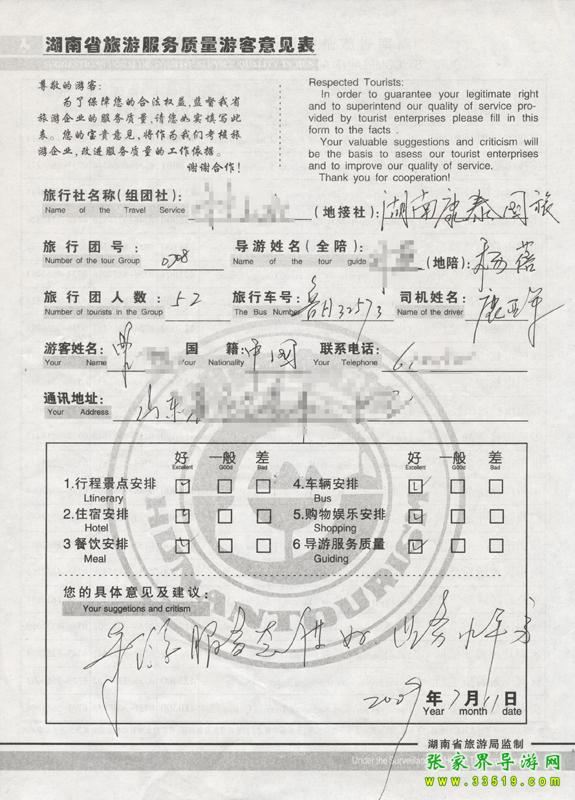 湖南省旅游服务质量游客意见表
尊敬的游客:
为了保障您的合法权益,监督我省
旅游企业的服务质量,请您如实填写此
表。您的宝贵意见,将作为我们考核旅
游企业,改进服务质量的工作依据。
谢谢合作!
Respected Tourists:
In order to guarantee your legitimate right
and to superintend our quality of service pro-
vided by tourist enterprises please fill in this
form to the facts .
Your valuable suggestions and criticism will
be the basis to asess our tourist enterprises
and to improve our quality of service.
Thank you for cooperation!
旅行社名称(组团社): (地接社): 湖南康泰国旅
Name of the Travel Service
旅行团号: 0708 导游姓名(全陪) (地陪): 杨蓓
Number of the tour Group Name of the tour guide
旅行团人数: 52 旅行车号: 鲁H32573 司机姓名:
Number of tourists in the Group The Bus Number Name of the driver
游客姓名: 国籍: 中国 联系电话:
Your Name Your Nationality Your Telephone
通讯地址: 山东
Your Address
好 一般 差 好 一般 差
Excellent Good Bad Excellent Good Bad
1.行程景点安排 4.车辆安排
Ltinerary Bus
2.住宿安排 5.购物娱乐安排
Hotel Shopping
3 餐饮安排 6 导游服务质量
Meal Guiding
HUNANTOURIST
您的具体意见及建议:
Your suggetions and critism
导游服务态度好
2009 年 7 月 11 日
Year month date
湖南省旅游局监制
Under the Surveillance
张家界导游网
www.33519.com